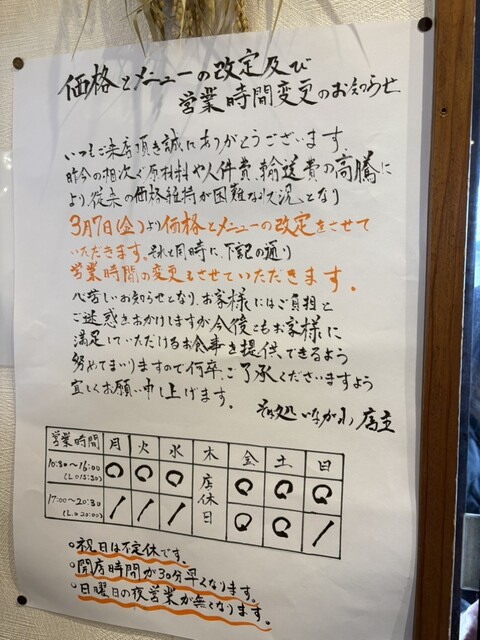 価格とメニューの改定及び
営業時間変更のお知らせ
いつもご来店頂き誠にありがとうございます。
昨今の相次ぐ原材料や人件費、輸送費の高騰に
より、従来の価格維持が困難な状況となり
3月7日(金)より価格とメニューの改定をさせて
いただきます。それと同時に、下記の通り
営業時間の変更もさせていただきます。
心苦しいお知らせとなり、お客様にはご負担と
ご迷惑をおかけしますが今後ともお客様に
満足していただけるお食事を提供できるよう
努めてまいりますので何卒、ご了承くださいますよう
宜しくお願い申し上げます。
そば処 いながわ 店主
営業時間 月 火 水 木 金 土 日
10:30〜16:00 ○ ○ ○ 店休日 ○ ○ ○
(L.O 15:30)
17:00〜20:30 / / / ○ ○ /
(L.O 20:00)
○祝日は不定休です。
○開店時間が30分早くなります。
○日曜日の夜営業が無くなります。